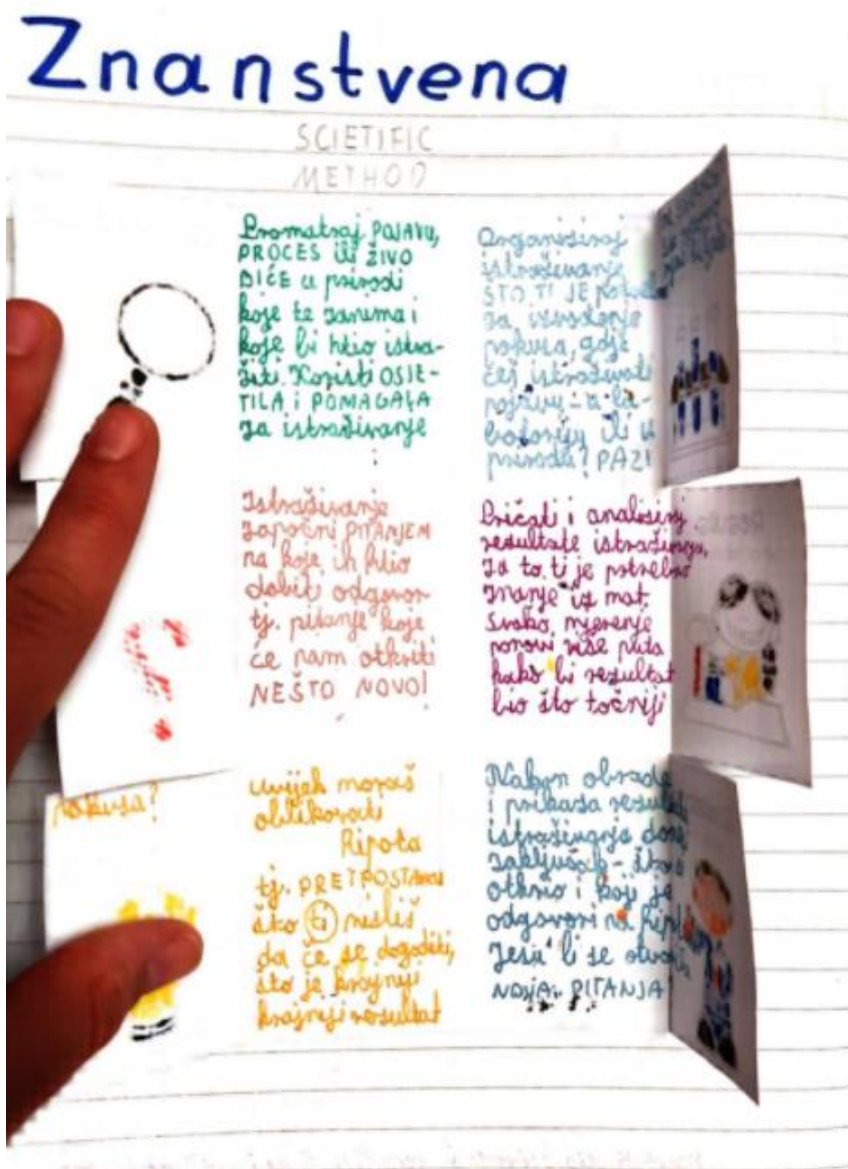 Znanstvena
SCIETIFIC
METHOD
Promatraj POJAVU,
PROCES ili ŽIVO
BIĆE u prirodi
koje te zanima i
koje bi htio istra-
žiti. Koristi OSJE-
TILA i POMAGALA
za istraživanje
Istraživanje
započni PITANJEM
na koje ih htio
dobiti odgovor
tj. pitanje koje
će nam otkriti
NEŠTO NOVO!
pokusa?
uvijek moraš
oblikovati
tj. PRETPOSTAVKU
što ti misliš
da će se dogoditi,
što je krajnji
krajnji rezultat
Organiziraj
istraživanje
ŠTO TI JE
za izvođenje
pokusa, gdje
ćeš istraživati
pojavu - u la-
boratoriju ili u
prirodi? PAZI
i analiziraj
rezultate
Za to ti je potrebno
znanje iz mat.
Svako mjerenje
ponovi više puta
kako bi rezultat
bio što točniji
Nakon obrade
i prikaza
istraživanja
zaključak -
otkrio i koji je
odgovori na
Jesu li se
NOVA PITANJA